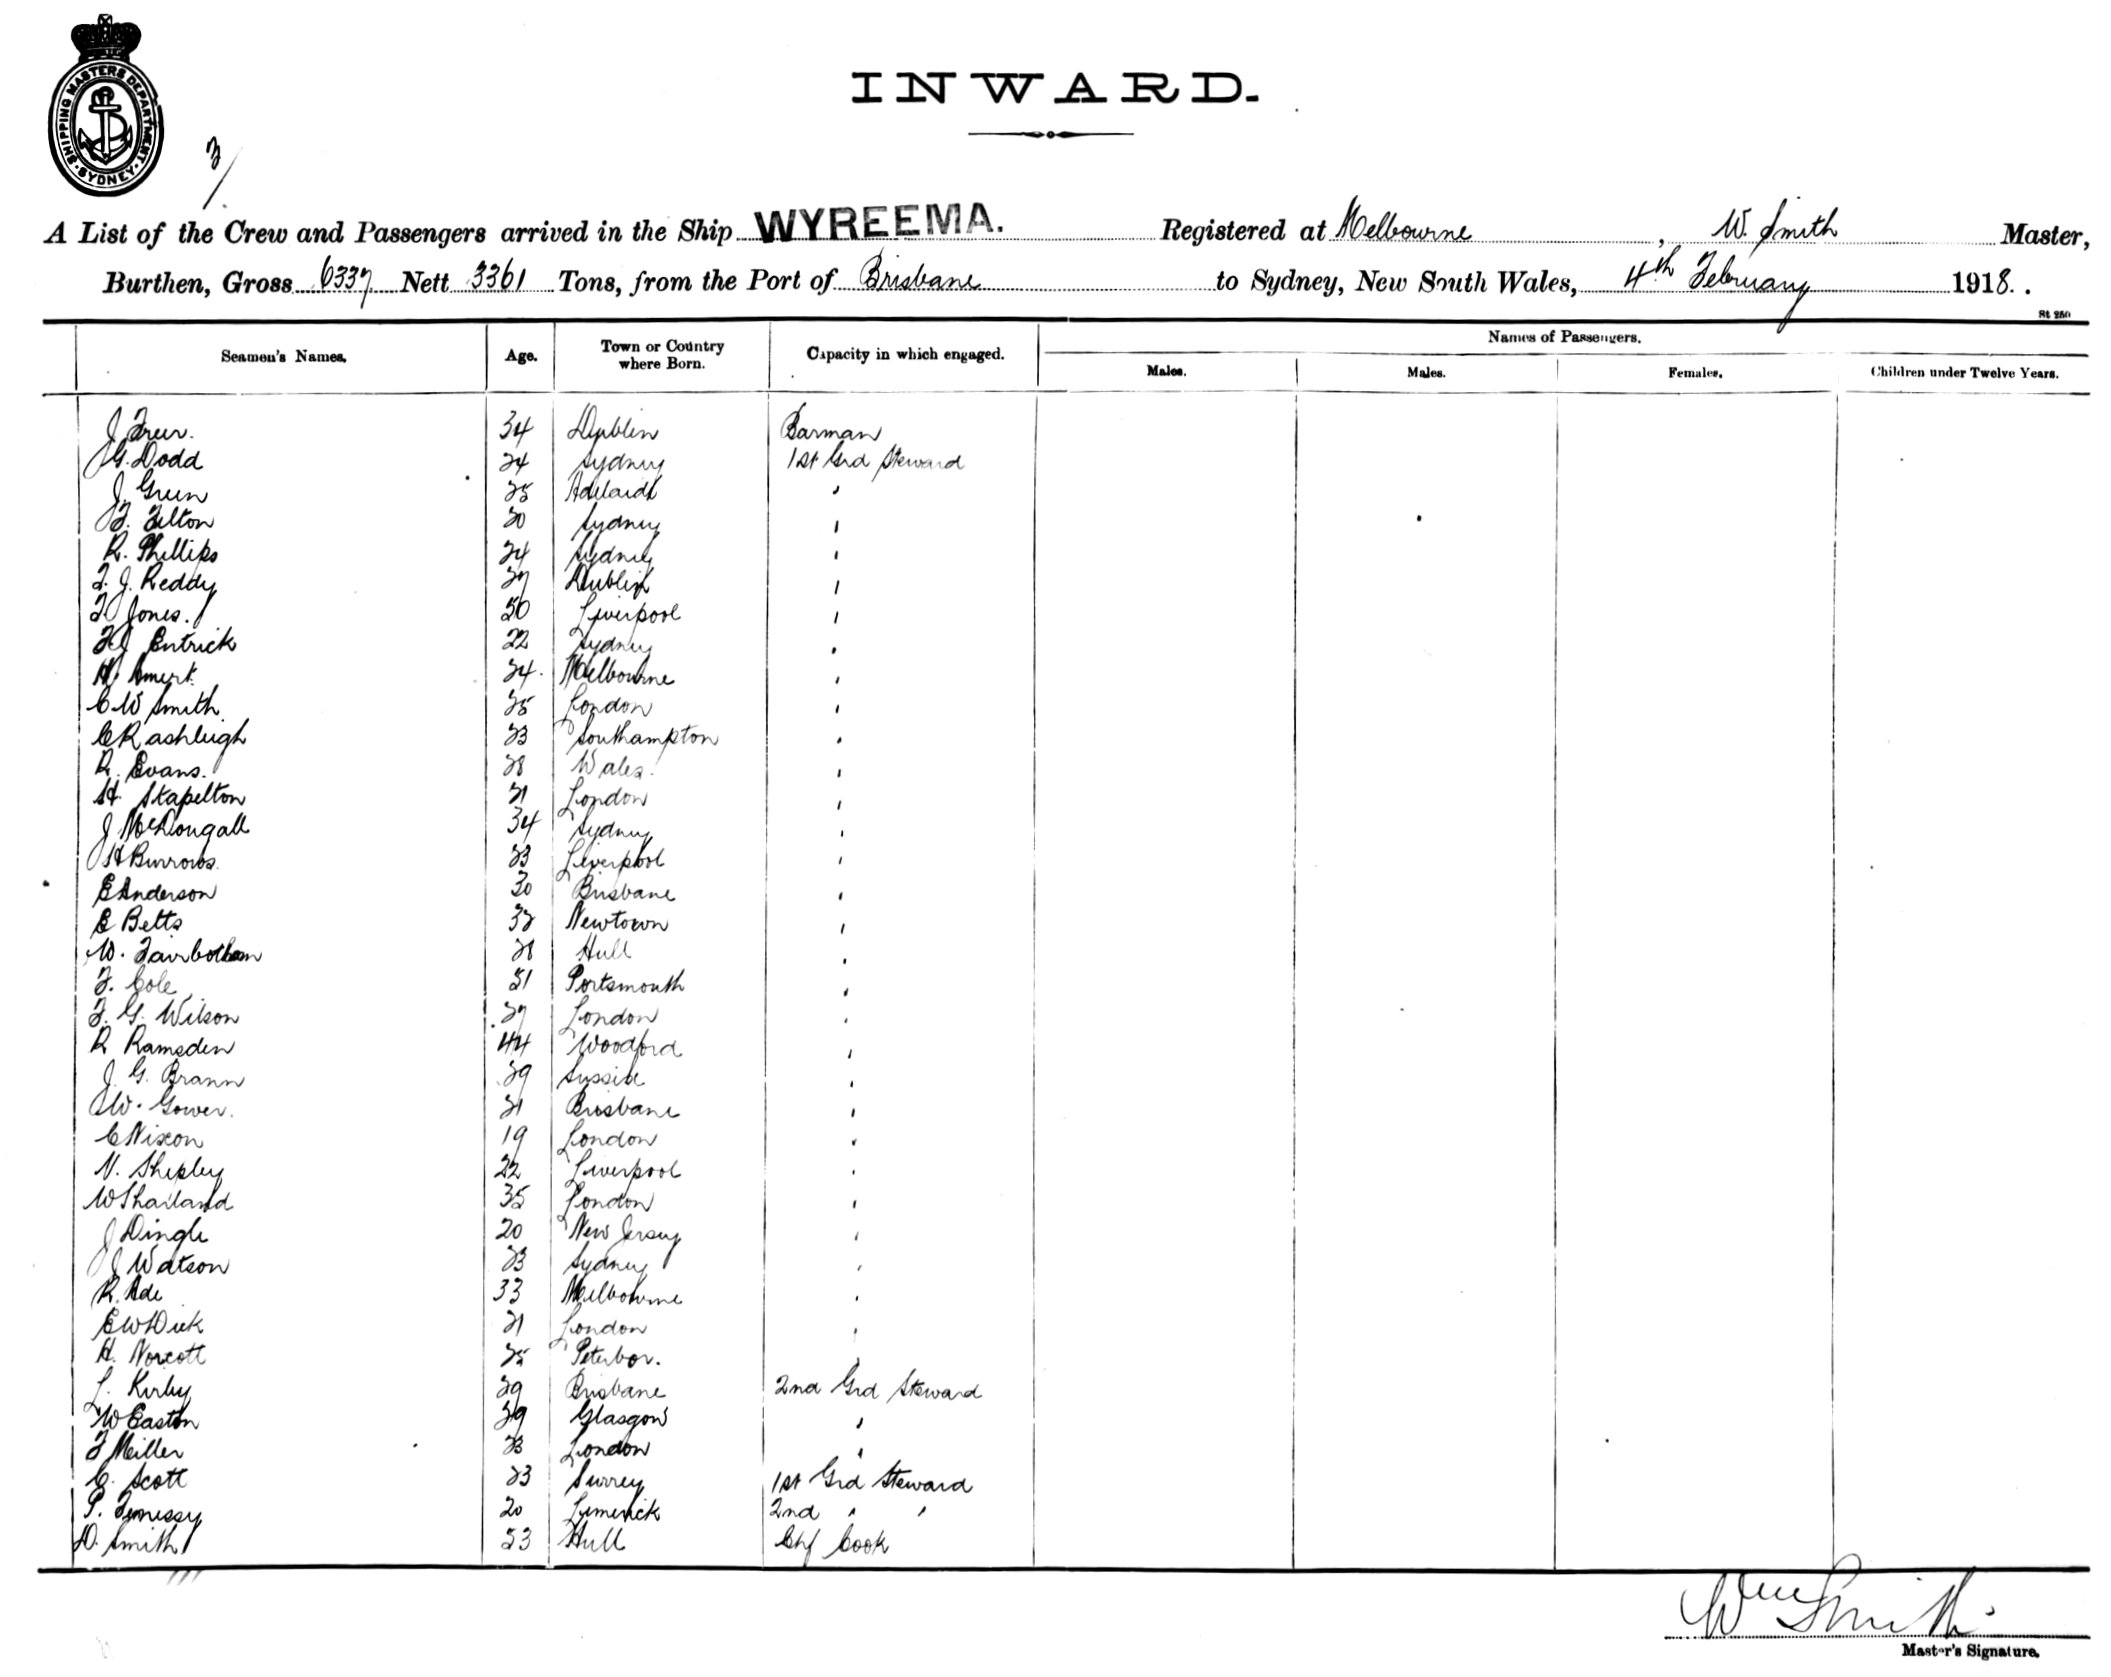 SHIPPING MASTERS DEPARTMENT. SYDNEY
INWARD.
3/
A List of the Crew and Passengers arrived in the Ship WYREEMA. Registered at Melbourne, W. Smith Master,
Burthen, Gross 6337 Nett 3361 Tons, from the Port of Brisbane to Sydney, New South Wales, 4th February 1918.
St 250
Names of Passengers.
Seamen's Names. Age. Town or Country where Born. Capacity in which engaged. Males. Males. Females. Children under Twelve Years.
J 34 Dublin Barman
G. Dodd 24 Sydney 1st Grd Steward
J. Green 25 Adelaide "
F. Felton 30 Sydney "
R. Phillips 24 Sydney "
T. J. Reddy 27 Dublin "
T Jones. 50 Liverpool "
F J Entrick 22 Sydney "
H. 24. Melbourne "
C W Smith 25 London "
C Rashleigh 23 Southampton "
R. Evans. 28 Wales. "
H. Stapelton 21 London "
J McDougall 34 Sydney "
H Burrows. 23 Liverpool "
E Anderson 30 Brisbane "
E Betts 32 Newtown "
W. Fairbotham 28 Hull "
F. Cole 51 Portsmouth "
F. G. Wilson 27 London "
R Ramsden 44 Woodford "
J. G. Brann 29 "
W. Gower. 21 Brisbane "
C Nixon 19 London "
N. Shepley 22 Liverpool "
W Thailand 35 London "
J Dingle 20 New Jersey "
J Watson 23 Sydney "
R. Ade 33 Melbourne "
E W Dick 21 London "
H. Norcott 25 Peterbor. "
L. Kirby 29 Brisbane 2nd Grd Steward
W Easton 29 Glasgow "
F Meiller 23 London "
C. Scott 23 Surrey 1st Grd Steward
P. 20 Limerick 2nd " "
D. Smith 53 Hull Chf Cook
Wm Smith
Master's Signature.